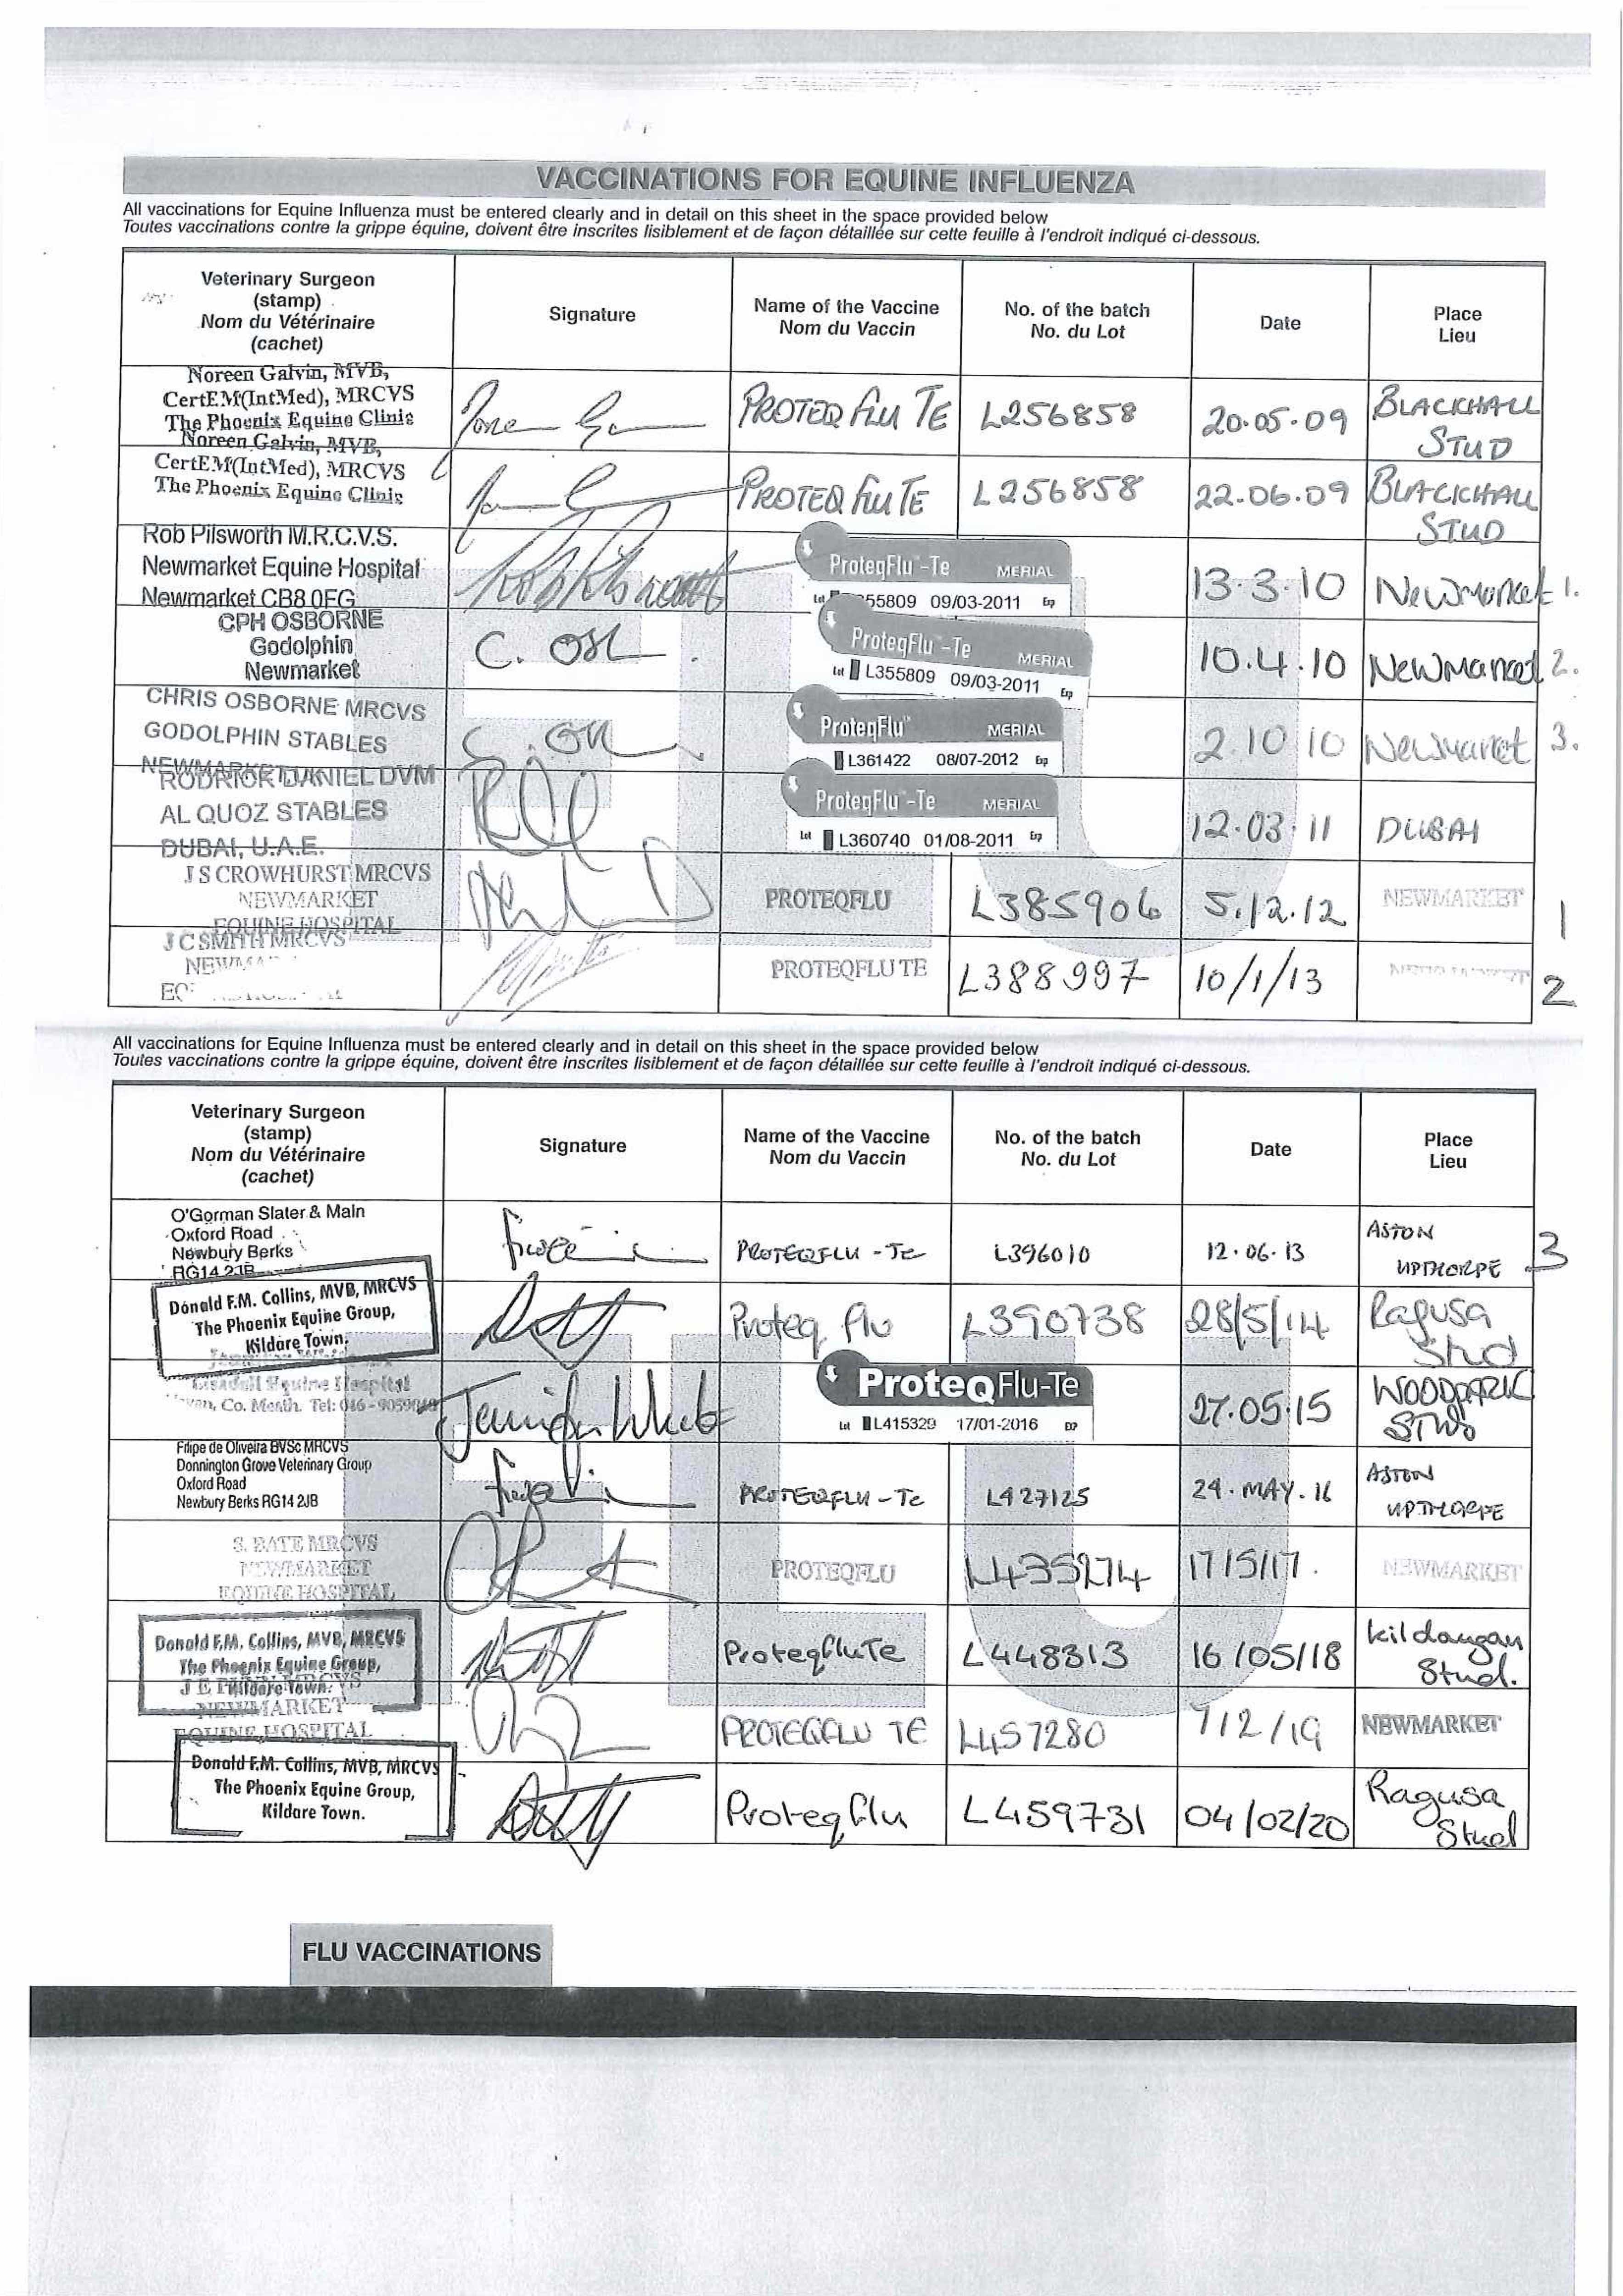 VACCINATIONS FOR EQUINE INFLUENZA
All vaccinations for Equine Influenza must be entered clearly and in detail on this sheet in the space provided below
Toutes vaccinations contre la grippe équine, doivent être inscrites lisiblement et de façon détaillée sur cette feuille à l'endroit indiqué ci-dessous.
Veterinary Surgeon
(stamp)
Nom du Vétérinaire
(cachet)
Signature
Name of the Vaccine
Nom du Vaccin
No. of the batch
No. du Lot
Date
Place
Lieu
Noreen Galvin, MVB,
CertEM(IntMed), MRCVS
The Phoenix Equine Clinic
PROTEQ FLU TE
L256858
20.05.09
BLACKHALL
STUD
Noreen Galvin, MVB,
CertEM(IntMed), MRCVS
The Phoenix Equine Clinic
PROTEQ FLU TE
L256858
22.06.09
BLACKHALL
STUD
Rob Pilsworth M.R.C.V.S.
Newmarket Equine Hospital
Newmarket CB8 0FG
ProteqFlu-Te MERIAL
Lot 55809 09/03-2011 Exp
13.3.10
Newmarket 1.
CPH OSBORNE
Godolphin
Newmarket
C. Osb
ProteqFlu-Te MERIAL
Lot L355809 09/03-2011 Exp
10.4.10
Newmarket 2.
CHRIS OSBORNE MRCVS
GODOLPHIN STABLES
NEWMARKET
ProteqFlu MERIAL
L361422 08/07-2012 Exp
2.10.10
Newmarket 3.
DANIEL DVM
AL QUOZ STABLES
DUBAI, U.A.E.
ProteqFlu-Te MERIAL
Lot L360740 01/08-2011 Exp
12.03.11
DUBAI
J S CROWHURST MRCVS
NEWMARKET
EQUINE HOSPITAL
PROTEQFLU
L385906
5.12.12
NEWMARKET
1
J C SMITH MRCVS
PROTEQFLU TE
L388997
10/1/13
2
All vaccinations for Equine Influenza must be entered clearly and in detail on this sheet in the space provided below
Toutes vaccinations contre la grippe équine, doivent être inscrites lisiblement et de façon détaillée sur cette feuille à l'endroit indiqué ci-dessous.
Veterinary Surgeon
(stamp)
Nom du Vétérinaire
(cachet)
Signature
Name of the Vaccine
Nom du Vaccin
No. of the batch
No. du Lot
Date
Place
Lieu
O'Gorman Slater & Main
Oxford Road
Newbury Berks
RG14 2JB
PROTEQFLU - Te
L396010
12.06.13
ASTON
UPTHORPE
3
Donald F.M. Collins, MVB, MRCVS
The Phoenix Equine Group,
Kildare Town.
Proteq Flu
L390738
28/5/14
Ragusa
Stud
Equine Hospital
Co. Meath. Tel: 046-
ProteqFlu-Te
Lot L415329 17/01-2016 EXP
27.05.15
WOODPARK
STUD
Filipe de Oliveira BVSc MRCVS
Donnington Grove Veterinary Group
Oxford Road
Newbury Berks RG14 2JB
PROTEQFLU - Te
L427125
24.MAY.16
ASTON
UPTHORPE
S. BATE MRCVS
NEWMARKET
EQUINE HOSPITAL
PROTEQFLU
L435274
17/5/17.
NEWMARKET
Donald F.M. Collins, MVB, MRCVS
The Phoenix Equine Group,
Kildare Town.
ProteqfluTe
L448313
16/05/18
Kildangan
Stud.
NEWMARKET
EQUINE HOSPITAL
PROTEQFLU TE
L457280
7/2/19
NEWMARKET
Donald F.M. Collins, MVB, MRCVS
The Phoenix Equine Group,
Kildare Town.
Proteqflu
L459731
04/02/20
Ragusa
Stud
FLU VACCINATIONS